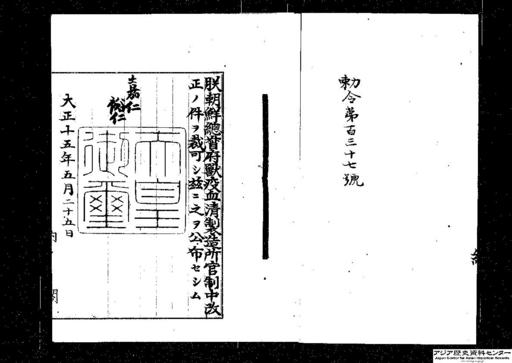 勅令第百三十七號
朕朝鮮總督府獸疫血清製造所官制中改
正ノ件ヲ裁可シ茲ニ之ヲ公布セシム
嘉仁
裕仁
天皇御璽
大正十五年五月二十五日
内閣
アジア歴史資料センター
Japan Center for Asian Historical Records